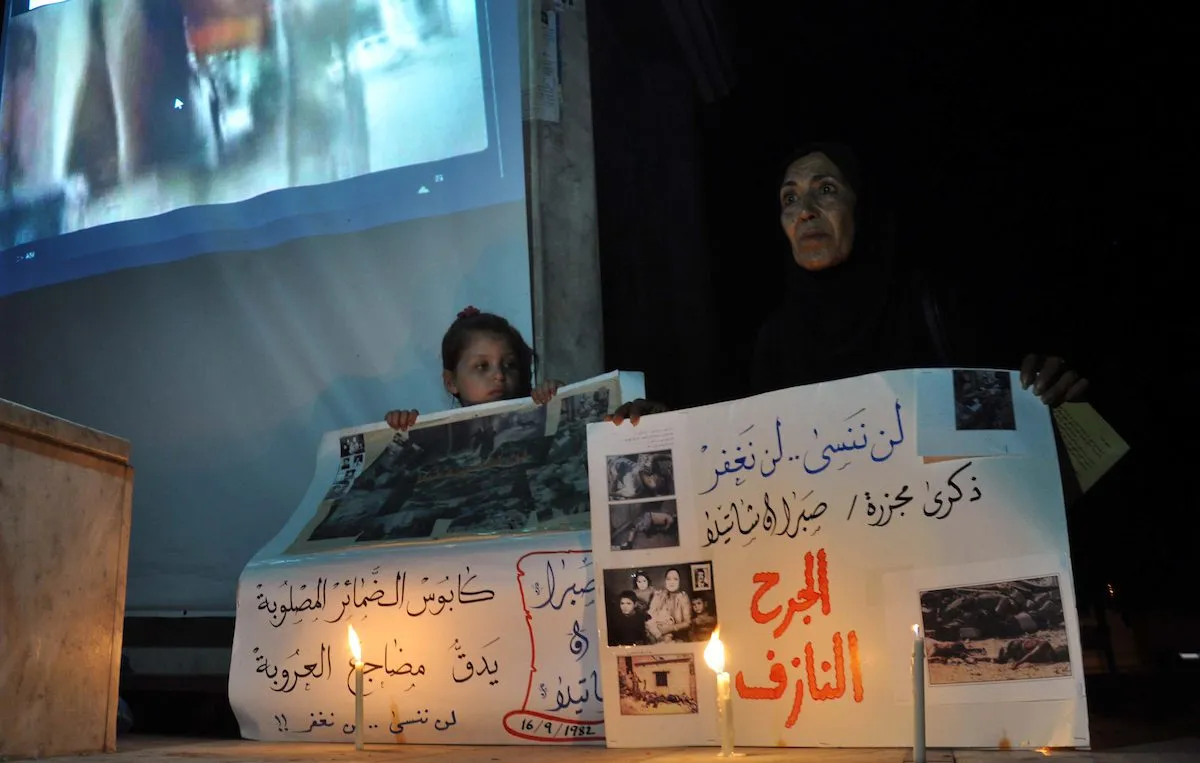 لن ننسى .. لن نغفر
ذكرى مجزرة / صبرا و شاتيلا
الجرح
النازف
كابوس الضمائر المصلوبة
يدق مضاجع العروبة
لن ننسى .. لن نغفر !!
صبرا
و
شاتيلا
16/9/1982